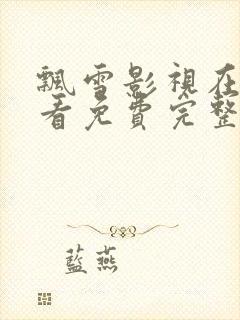 飄雪影視在
看免費完整
藍燕